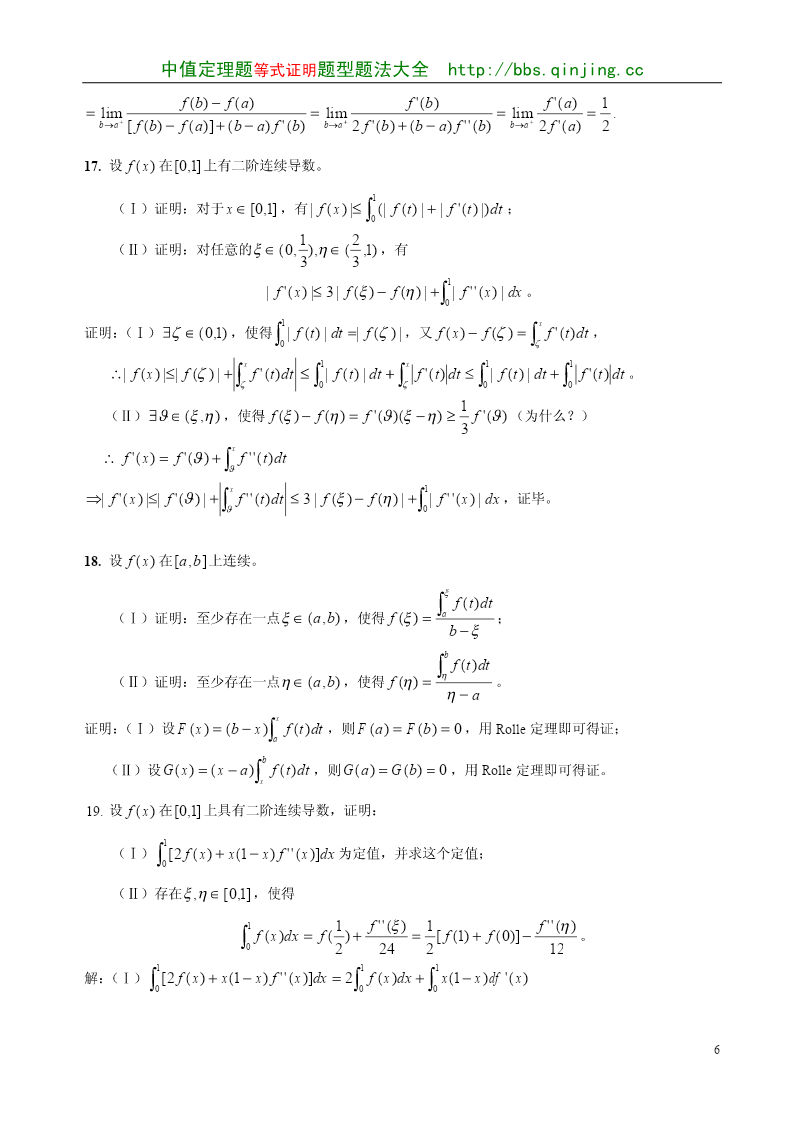 中值定理题等式证明题型题法大全 http://bbs.qinjing.cc
= lim_{b→a⁺} (f(b) − f(a)) / ([f(b) − f(a)] + (b − a)f'(b)) = lim_{b→a⁺} f'(b) / (2f'(b) + (b − a)f''(b)) = lim_{b→a⁺} f'(a) / (2f'(a)) = 1/2 .
17. 设 f(x) 在[0,1]上有二阶连续导数。
（Ⅰ）证明：对于 x ∈ [0,1]，有 | f(x) |≤ ∫_0^1 (| f(t) | + | f'(t) |)dt；
（Ⅱ）证明：对任意的 ξ ∈ (0, 1/3), η ∈ (2/3 ,1)，有
| f'(x) |≤ 3 | f(ξ) − f(η) | + ∫_0^1 | f''(x) | dx 。
证明：（Ⅰ）∃ζ ∈ (0,1)，使得 ∫_0^1 | f(t) | dt =| f(ζ) |，又 f(x) − f(ζ) = ∫_ζ^x f'(t)dt，
∴| f(x) |≤| f(ζ) | + |∫_ζ^x f'(t)dt| ≤ ∫_0^1 | f(t) | dt + ∫_ζ^x | f'(t) | dt ≤ ∫_0^1 | f(t) | dt + ∫_0^1 | f'(t) | dt 。
（Ⅱ）∃ϑ ∈ (ξ, η)，使得 f(ξ) − f(η) = f'(ϑ)(ξ − η) ≥ 1/3 f'(ϑ)（为什么？）
∴ f'(x) = f'(ϑ) + ∫_ϑ^x f''(t)dt
⇒| f'(x) |≤| f'(ϑ) | + |∫_ϑ^x f''(t)dt| ≤ 3 | f(ξ) − f(η) | + ∫_0^1 | f''(x) | dx，证毕。
18. 设 f(x) 在[a,b]上连续。
（Ⅰ）证明：至少存在一点 ξ ∈ (a,b)，使得 f(ξ) = (∫_a^ξ f(t)dt) / (b − ξ)；
（Ⅱ）证明：至少存在一点 η ∈ (a,b)，使得 f(η) = (∫_η^b f(t)dt) / (η − a) 。
证明：（Ⅰ）设 F(x) = (b − x)∫_a^x f(t)dt，则 F(a) = F(b) = 0，用 Rolle 定理即可得证；
（Ⅱ）设 G(x) = (x − a)∫_x^b f(t)dt，则 G(a) = G(b) = 0，用 Rolle 定理即可得证。
19. 设 f(x) 在[0,1]上具有二阶连续导数，证明：
（Ⅰ）∫_0^1 [2f(x) + x(1 − x)f''(x)]dx 为定值，并求这个定值；
（Ⅱ）存在 ξ, η ∈ [0,1]，使得
∫_0^1 f(x)dx = f(1/2) + f''(ξ)/24 = 1/2 [f(1) + f(0)] − f''(η)/12 。
解：（Ⅰ）∫_0^1 [2f(x) + x(1 − x)f''(x)]dx = 2∫_0^1 f(x)dx + ∫_0^1 x(1 − x)df'(x)
6